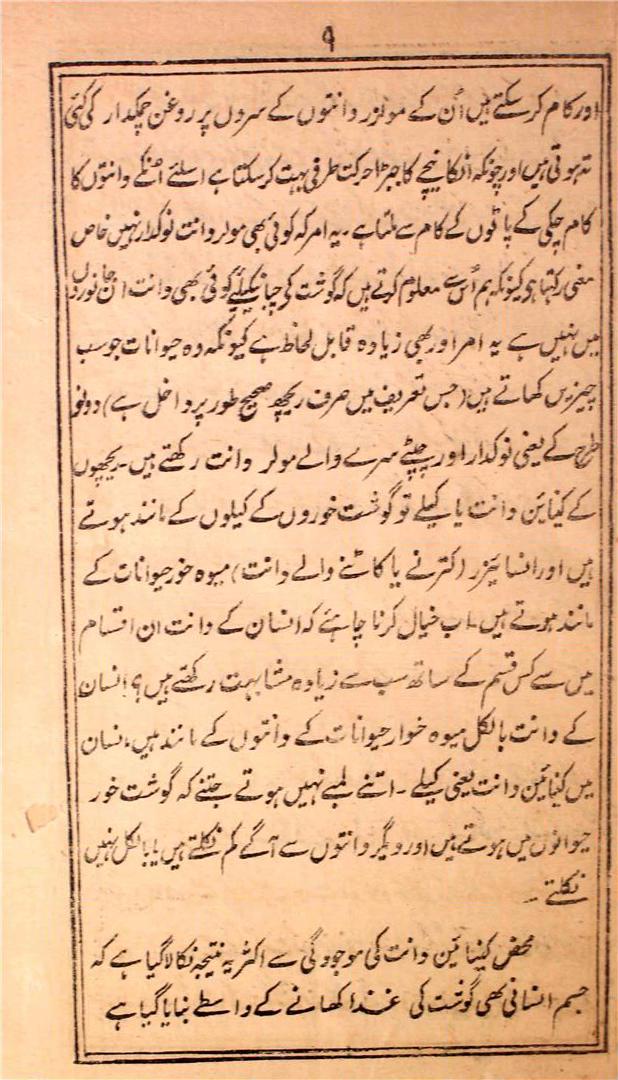 ۹
اور کام کر سکتے ہیں اُن کے مولر دانتوں کے سروں پر روغن چمکدار کی کئی
تہ ہوتی ہیں اور چونکہ انکا نیچے کا جبڑا حرکت طرفی بہت کر سکتا ہے اسلئے اُنکے دانتوں کا
کام چکی کے پاٹوں کے کام سے ملتا ہے ۔ یہ امر کہ کوئی بھی مولر دانت نوکدار نہیں خاص
معنی رکہتا ہی کیونکہ ہم اُس سے معلوم کرتے ہیں کہ گوشت کی چبانیکیلئے کوئی بھی دانت ان جانوروں
میں نہیں ہے یہ امر اور بھی زیادہ قابل لحاظ ہے کیونکہ وہ حیوانات جو سب
چیزیں کھاتے ہیں (جس تعریف میں صرف ریچھ صحیح طور پر داخل ہے) دونو
طرح کے یعنی نوکدار اور چپٹے سرے والے مولر دانت رکھتے ہیں ۔ ریچھوں
کے کینائین دانت یا کیلے تو گوشت خوروں کے کیلوں کے مانند ہوتے
ہیں اور انسائیزر (کترنے یا کاٹنے والے دانت) میوہ خور حیوانات کے
مانند ہوتے ہیں ۔ اب خیال کرنا چاہئے کہ انسان کے دانت ان اقسام
میں سے کس قسم کے ساتھ سب سے زیادہ مشابہت رکھتے ہیں؟ انسان
کے دانت بالکل میوہ خوار حیوانات کے دانتوں کے مانند ہیں ۔ انسان
میں کینائین دانت یعنی کیلے ۔ اتنے لمبے نہیں ہوتے جتنے کہ گوشت خور
حیوانوں میں ہوتے ہیں اور دیگر دانتوں سے آگے کم نکلتے ہیں یا بالکل نہیں
نکلتے ۔
محض کینائین دانت کی موجودگی سے اکثر یہ نتیجہ نکالا گیا ہے کہ
جسم انسانی بھی گوشت کی غذا کھانے کے واسطے بنایا گیا ہے